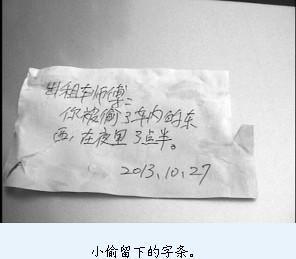 出租车师傅：
你被偷了车内的东
西，在夜里3点半。
2013.10.27
小偷留下的字条。